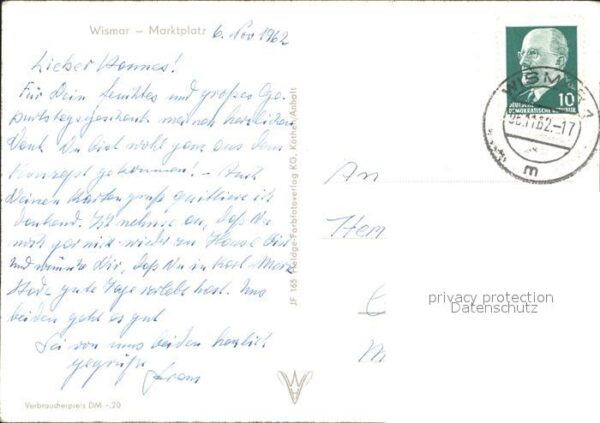 Wismar – Marktplatz 6. Nov 1962
Lieber Hannes!
Für Dein feuchtes und großes Ge-
burtstagsgeschenk meinen herzlichen
Dank. Du bist wohl ganz aus dem
Konzept gekommen! – Auch
Deinen Kartengruß quittiere ich
dankend. Ich nehme an, daß Du
noch gar nicht wieder zu Hause bist
und wünsche Dir, daß Du in Karl-Marx-
Stadt gute Tage verlebt hast. Uns
beiden geht es gut
Sei von uns beiden herzlich
gegrüßt
An
Herrn
privacy protection
Datenschutz
JF 165 Farbfotoverlag KG, Anhalt
10
DEUTSCHE
DEMOKRATISCHE REPUBLIK
WISMAR 1
.11.62.-17
m
Verbraucherpreis DM -,20